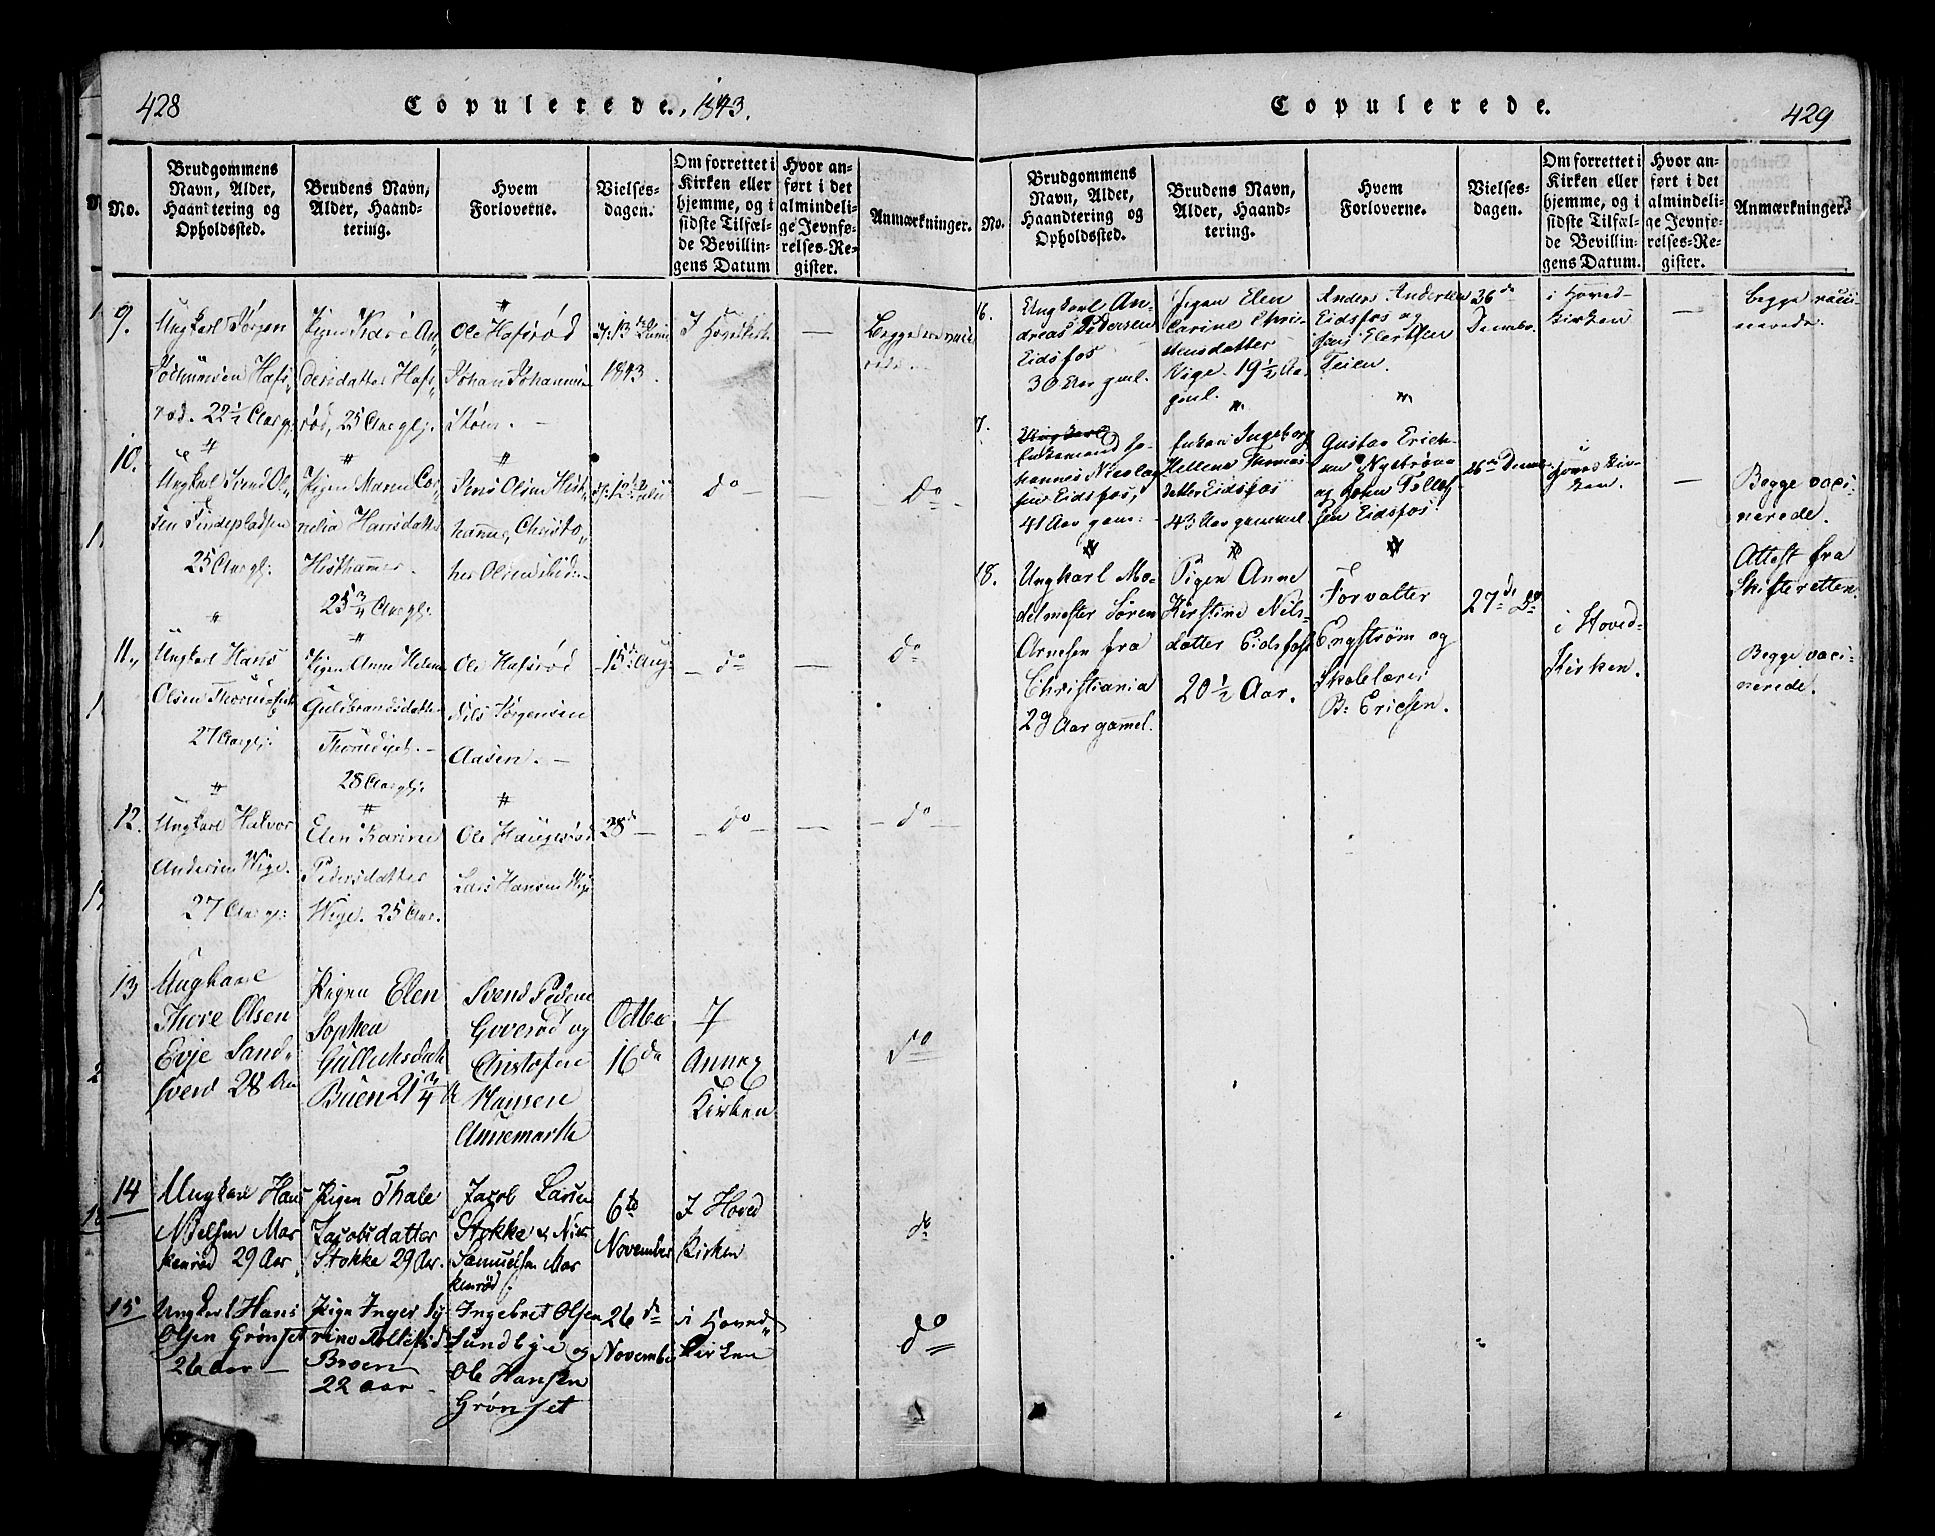 428
Copulerede. 1843.
No.
Brudgommens Navn, Alder, Haandtering og Opholdssted.
Brudens Navn, Alder, Haandtering.
Hvem Forloverne.
Vielsesdagen.
Om forrettet i Kirken eller hjemme, og i sidste Tilfælde Bevillingens Datum
Hvor anført i det almindelige Jevnførelses-Register.
Anmærkninger.
9.
Ungkarl Jørgen
Hafs
rød. 22 1/2 Aar gl:
Pigen Kari An
dersdatter Hafs
rød, 25 Aar glj.
Ole Hafsrød
Johan
13
1843.
I
Begge
10.
Ungkarl Svend Ol
sen Findepladsen
25 Aar glj:
Pigen Maren Cor
nelia Hansdatter
Histhammer.
25 3/4 Aar glj:
Jens Olsen Hist
hamme, Christo
her Olsen
12
do
do
11.
Ungkarl Hans
Olsen
27 Aar glj:
Pigen Anne Helene
Guldbrandsdatter
28 Aar glj:
Ole Hafsrød
Nils Jørgensen
Aasen.
15 Aug:
do
do
12.
Ungkarl Halvor
Andersen Wige.
27 Aar gl:
Elen Karine
Pedersdatter
Wige. 25 Aar.
Ole Haugesrød
Lars Hansen Wige
28
do
do
13
Ungkarl
Thore Olsen
Evje Sand
sverd 28 Aar
Pigen Elen
Sophea
Gulleksdatt
Buen 21 3/4
Svend Peders
Goverød og
Christofer
Hansen
Annemarth
Octbr
16 de
I
Annex
Kirken
do
14
Ungkarl Hans
Nielsen Mar
kerød 29 Aar
Pigen Thale
Jacobsdatter
Stokke 29 Aar.
Jacob Larsen
Stokke & Niels
Samuelsen Mar
kerød
6te
November
I Hoved
Kirken
do
15
Ungkarl Hans
Olsen Grønset
26 aar
Pigen Inger Sy
rine
Broen
22 aar
Ingebret Olsen
Sundbye og
Ole Hansen
Grønset
26 de
November
i Hoved
Kirken
do
Copulerede.
429
No.
Brudgommens Navn, Alder, Haandtering og Opholdssted.
Brudens Navn, Alder, Haandtering.
Hvem Forloverne.
Vielsesdagen.
Om forrettet i Kirken eller hjemme, og i sidste Tilfælde Bevillingens Datum.
Hvor anført i det almindelige Jevnførelses-Register.
Anmærkninger.
16.
Ungkarl An
dreas Pedersen
Eidsfos
30 Aar gml.
Pigen Elen
Carine Chri
stensdatter
Vige. 19 1/2 Aar
gml.
Anders Andersen
Eidsfos og
Hans Evertsen
Teien.
26 de
Decembr
i Hoved-
kirken
Begge vacci
nerede.
7.
Ungkarl
Enkemand Jo-
hannes Nicolay
sen Eidsfos,
41 Aar gam:
Enken Ingeborg
Hellene Thomas
datter Eidsfos
43 Aar gammel
Gustav Erich-
sen Nystrøm
og Johan Tollef
sen Eidsfos.
26 de Decembr
i
Hoved Kir
ken.
Begge vaci-
nerede.
Attest fra
Skifteretten
18.
Ungkarl Mo-
delmester Søren
Arnesen fra
Christiania
29 Aar gammel.
Pigen Anne
Kirstine Nils-
datter Eidsfos
20 1/2 Aar.
Forvalter
Engstrøm og
Skolelærer
B. Ericsen.
27 de Do
i Hoved-
Kirken.
Begge vaci-
nerede.